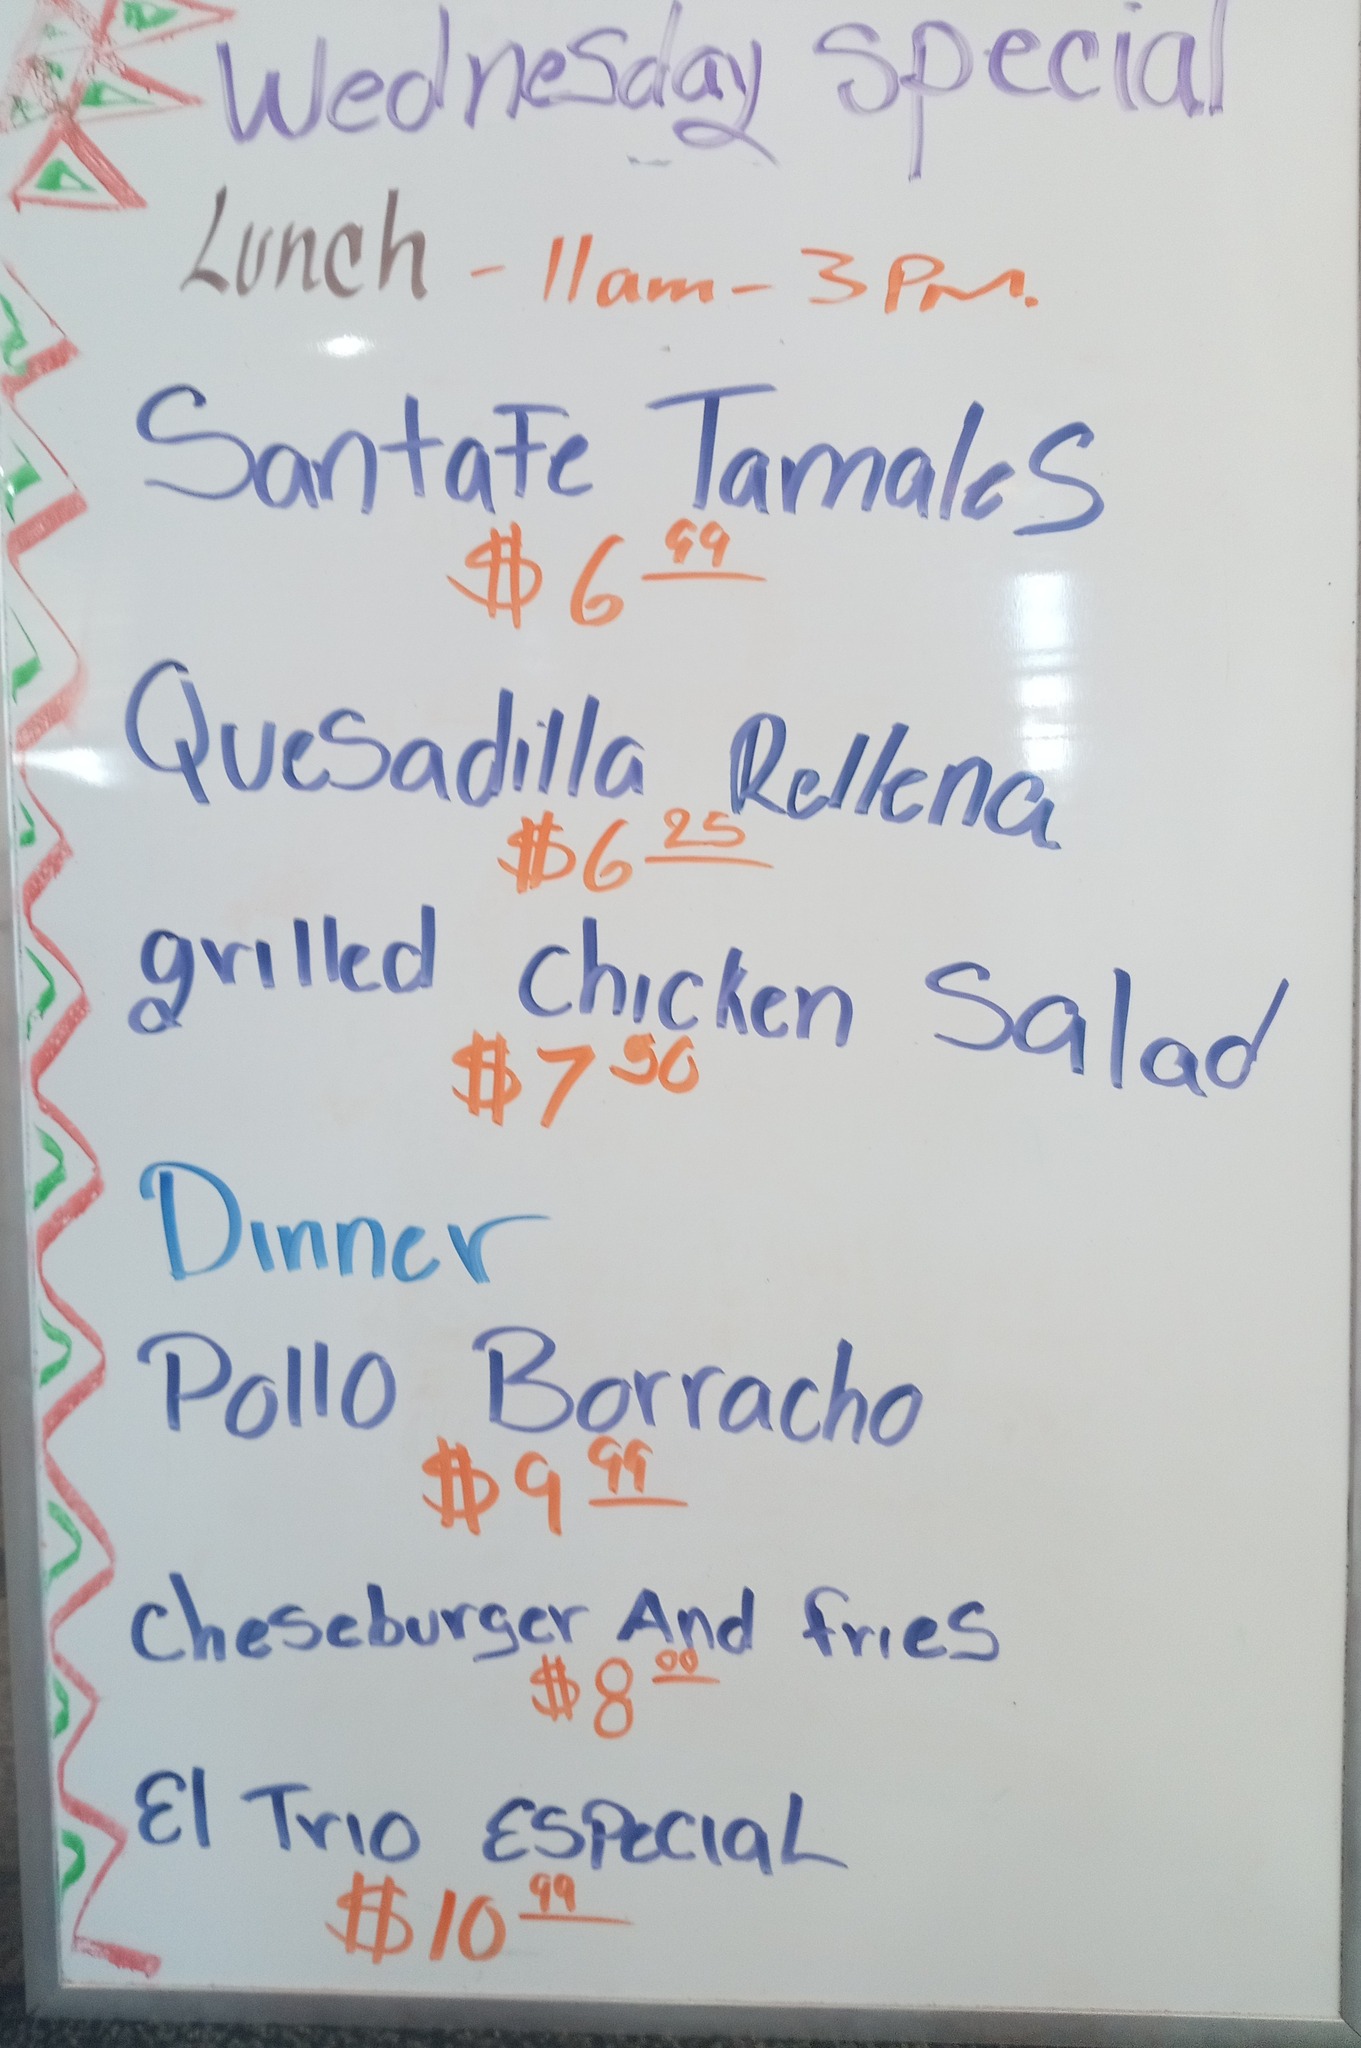 Wednesday Special
Lunch - 11am - 3 PM.
Santa Fe Tamales
$6 99
Quesadilla Rellena
$6 25
grilled chicken Salad
$7 50
Dinner
Pollo Borracho
$9 99
cheseburger And fries
$8 00
El Trio ESPecial
$10 99